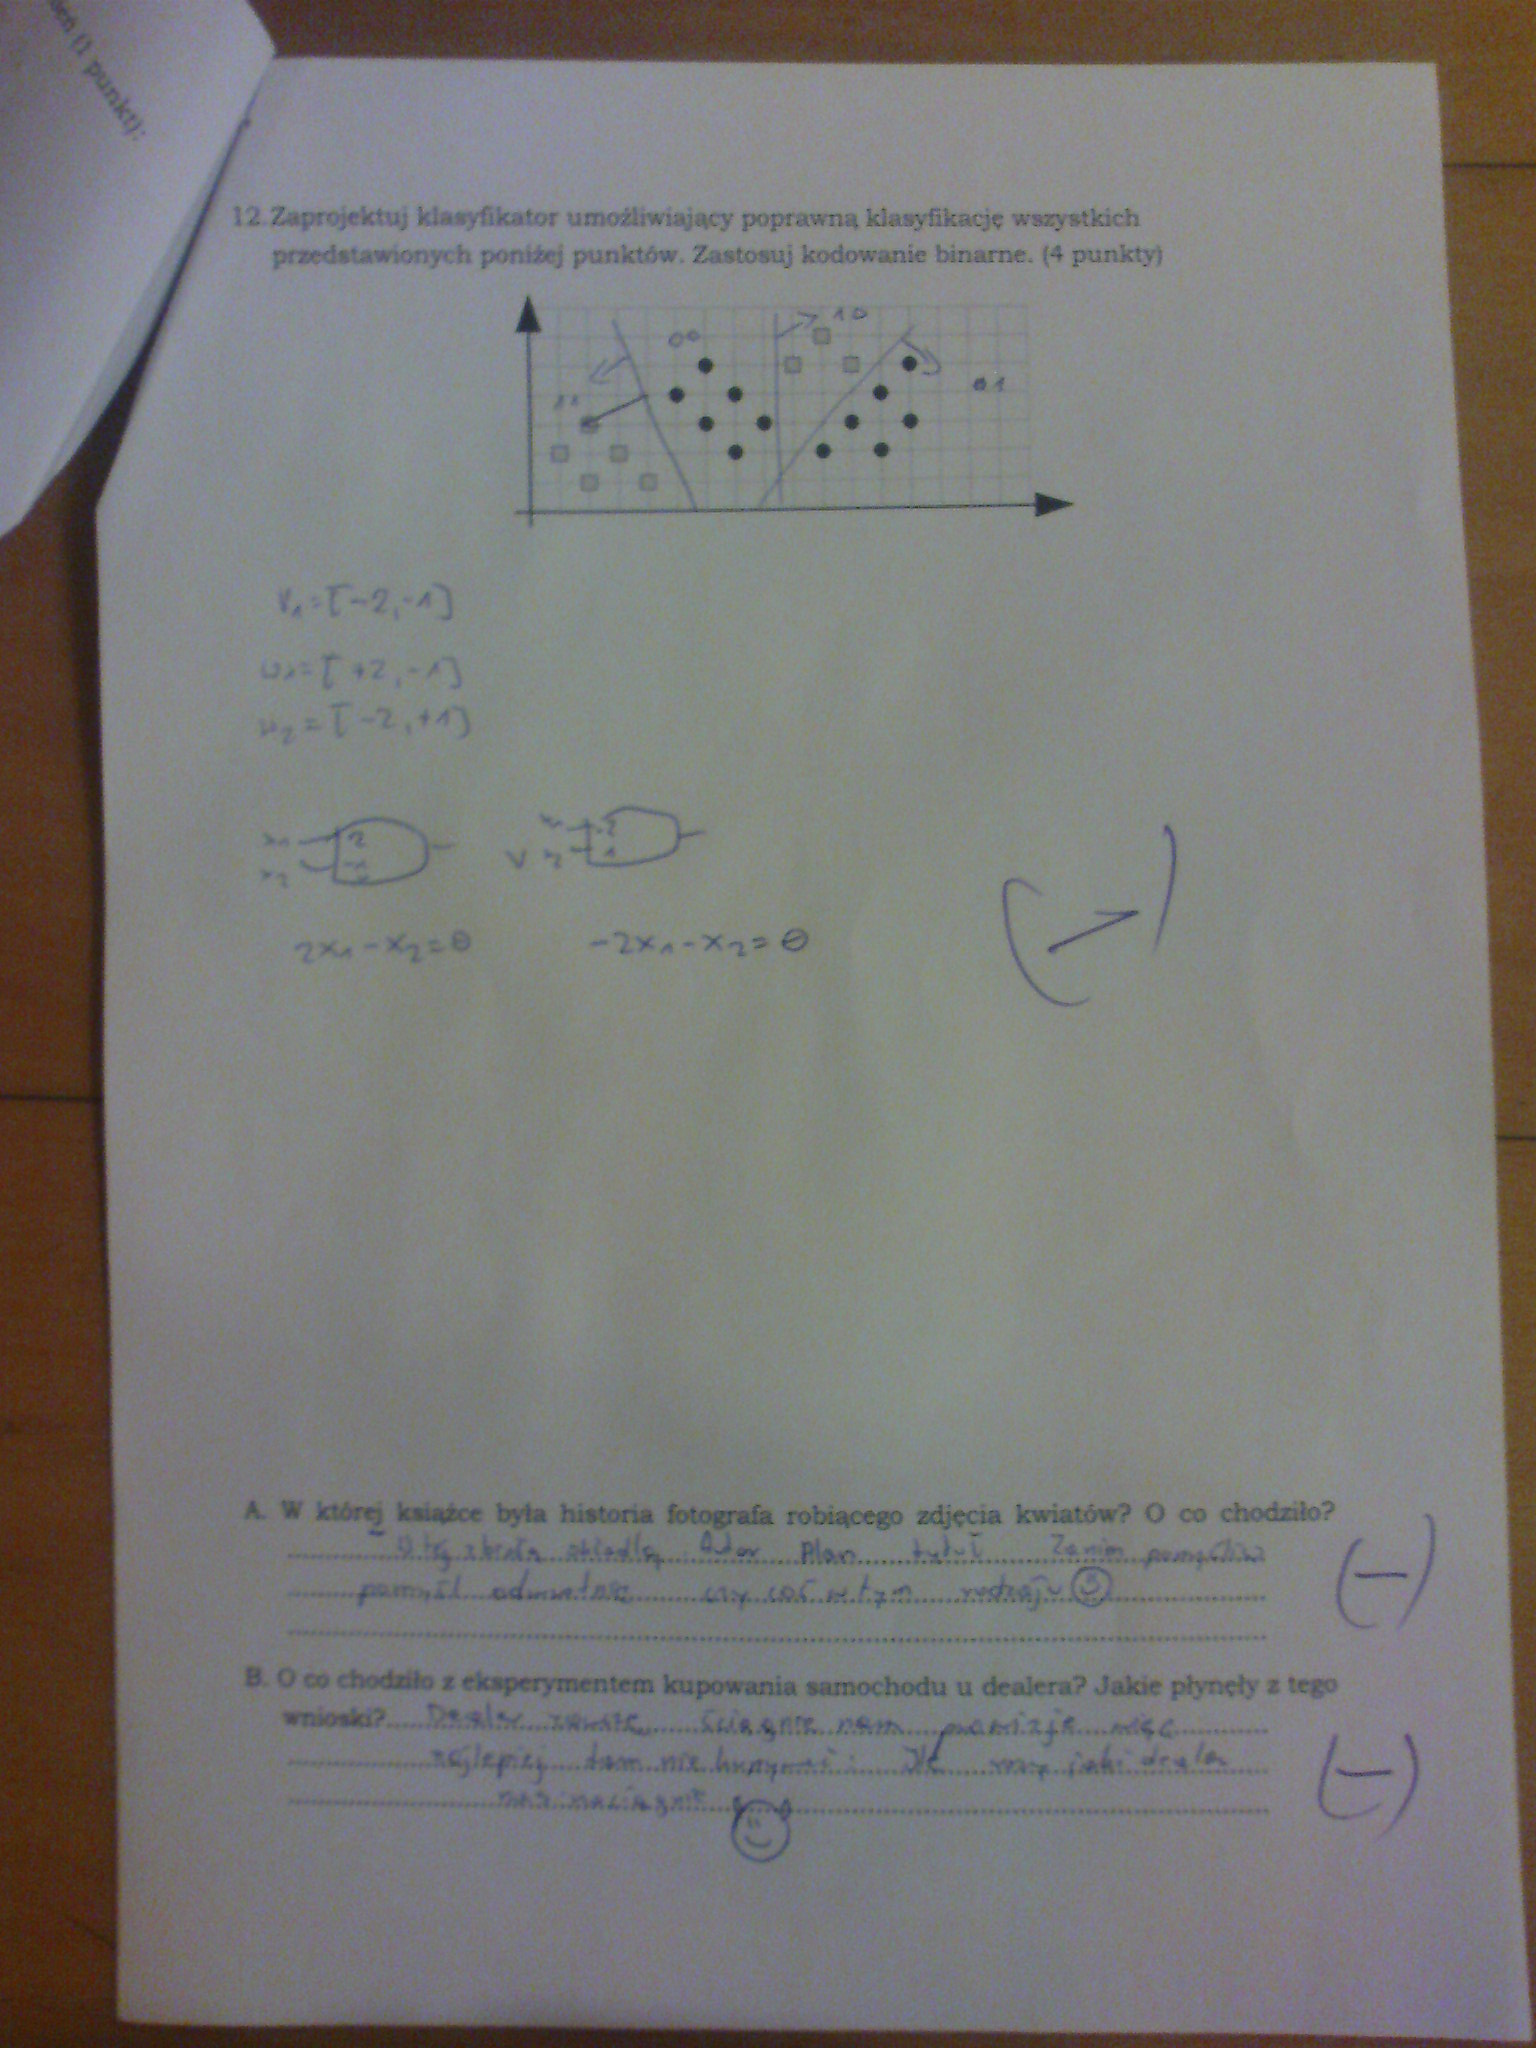 (1 punkt):
12. Zaprojektuj klasyfikator umożliwiający poprawną klasyfikację wszystkich
przedstawionych poniżej punktów. Zastosuj kodowanie binarne. (4 punkty)
00
10
11
01
V1 = [-2, -1]
= [+2, -1]
w2 = [-2, +1]
x1 2
x2 -1
x1 -2
V x2 1
2x1 - x2 = θ
-2x1 - x2 = θ
A. W której książce była historia fotografa robiącego zdjęcia kwiatów? O co chodziło?
Autor Plan tytuł Zanim pomyślisz
pomyśl odwrotnie czy coś w tym rodzaju
(-)
B. O co chodziło z eksperymentem kupowania samochodu u dealera? Jakie płynęły z tego
wnioski? Dealer zawsze ściągnie nam prowizję więc
najlepiej tam nie kupować
nas naciągnie
(-)